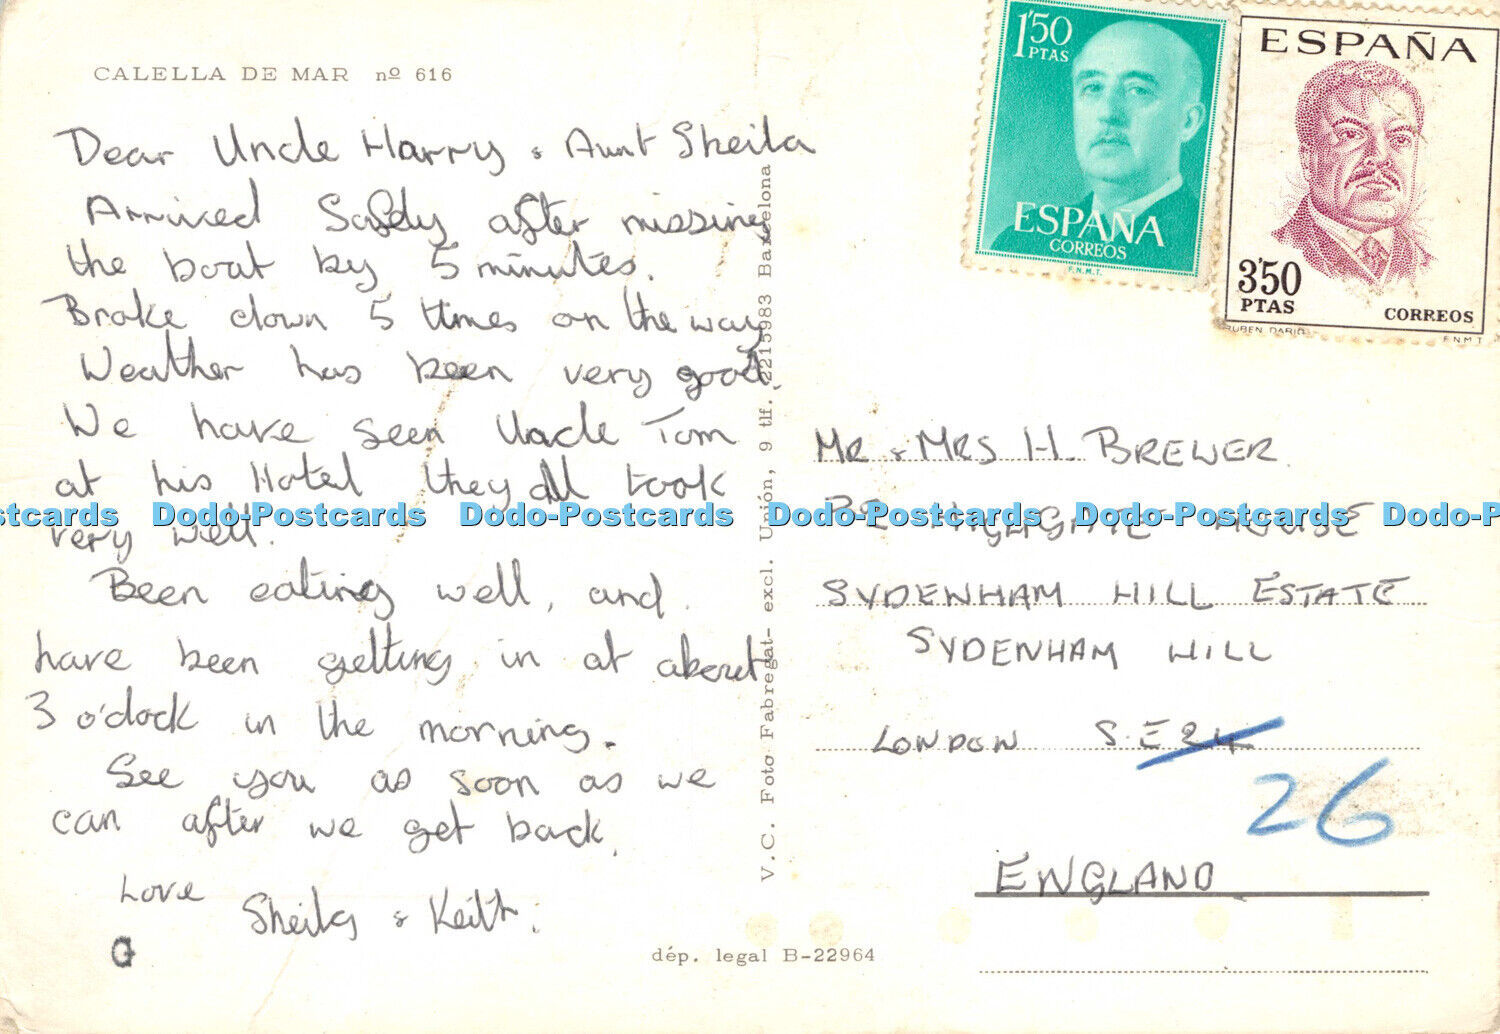 CALELLA DE MAR nº 616
Dear Uncle Harry & Aunt Sheila
Arrived Safely after missing
the boat by 5 minutes.
Brake down 5 times on the way
Weather has been very good.
We have seen Uncle Tom
at his Hotel they all look
very well.
Been eating well, and
have been getting in at about
3 o'clock in the morning.
See you as soon as we
can after we get back.
Love
Sheila & Keith.
G
V. C. Foto Fabregat- excl. Unión, 9 tlf. 2215983 Barcelona
dép. legal B-22964
1'50
PTAS
ESPAÑA
CORREOS
F.N.M.T.
ESPAÑA
3'50
PTAS
CORREOS
RUBEN DARIO
F.N.M.T
MR & MRS H. BREWER
HIGHGATE HOUSE
SYDENHAM HILL ESTATE
SYDENHAM HILL
LONDON S.E 24
26
ENGLAND
stcards Dodo-Postcards Dodo-Postcards Dodo-Postcards Dodo-Postcards Dodo-P